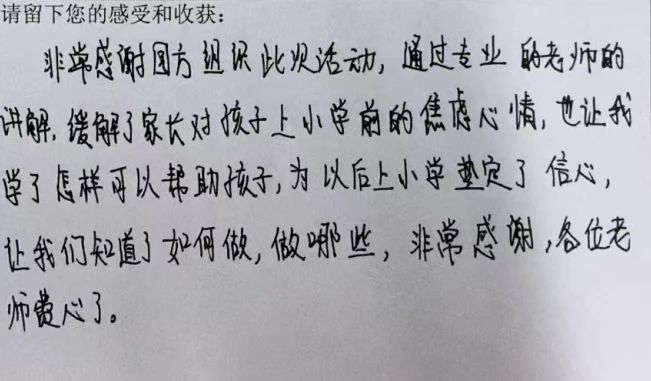 请留下您的感受和收获：
非常感谢园方组织此次活动，通过专业的老师的
讲解，缓解了家长对孩子上小学前的焦虑心情，也让我
学了怎样可以帮助孩子，为以后上小学垫定了信心，
让我们知道了如何做，做哪些，非常感谢，各位老
师费心了。